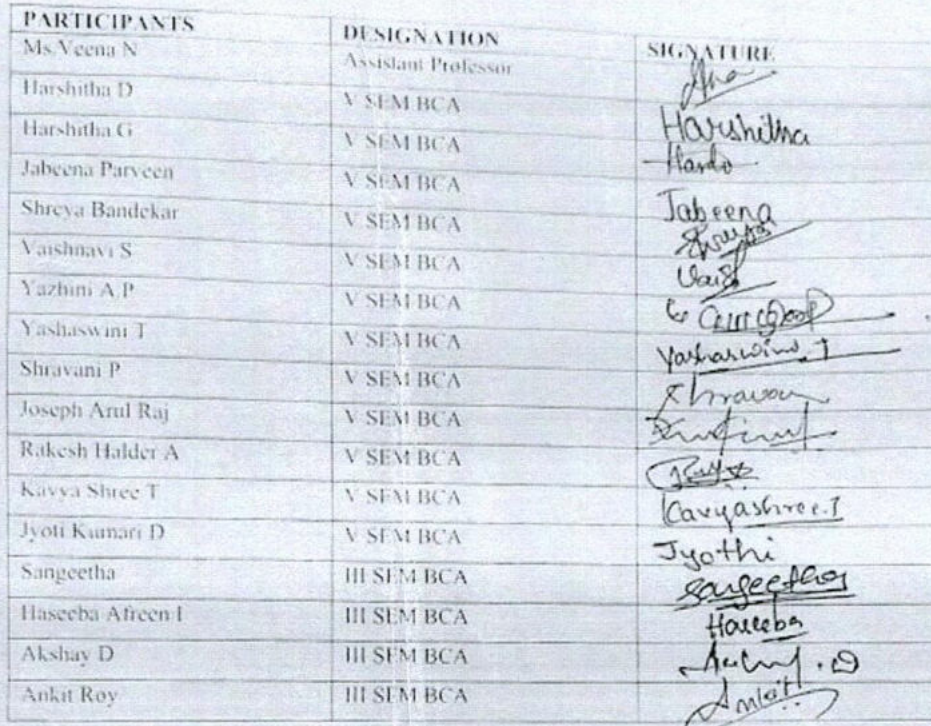 PARTICIPANTS DESIGNATION SIGNATURE
Ms.Veena N Assistant Professor
Harshitha D V SEM BCA Harshitha
Harshitha G V SEM BCA
Jabeena Parveen V SEM BCA Jabeena
Shreya Bandekar V SEM BCA
Vaishnavi S V SEM BCA
Yazhini A P V SEM BCA
Yashaswini T V SEM BCA Yashaswini T
Shravani P V SEM BCA
Joseph Arul Raj V SEM BCA
Rakesh Halder A V SEM BCA
Kavya Shree T V SEM BCA Kavyashree.T
Jyoti Kumari D V SEM BCA Jyothi
Sangeetha III SEM BCA Sangeetha
Haseeba Afreen I III SEM BCA Haseeba
Akshay D III SEM BCA
Ankit Roy III SEM BCA Ankit